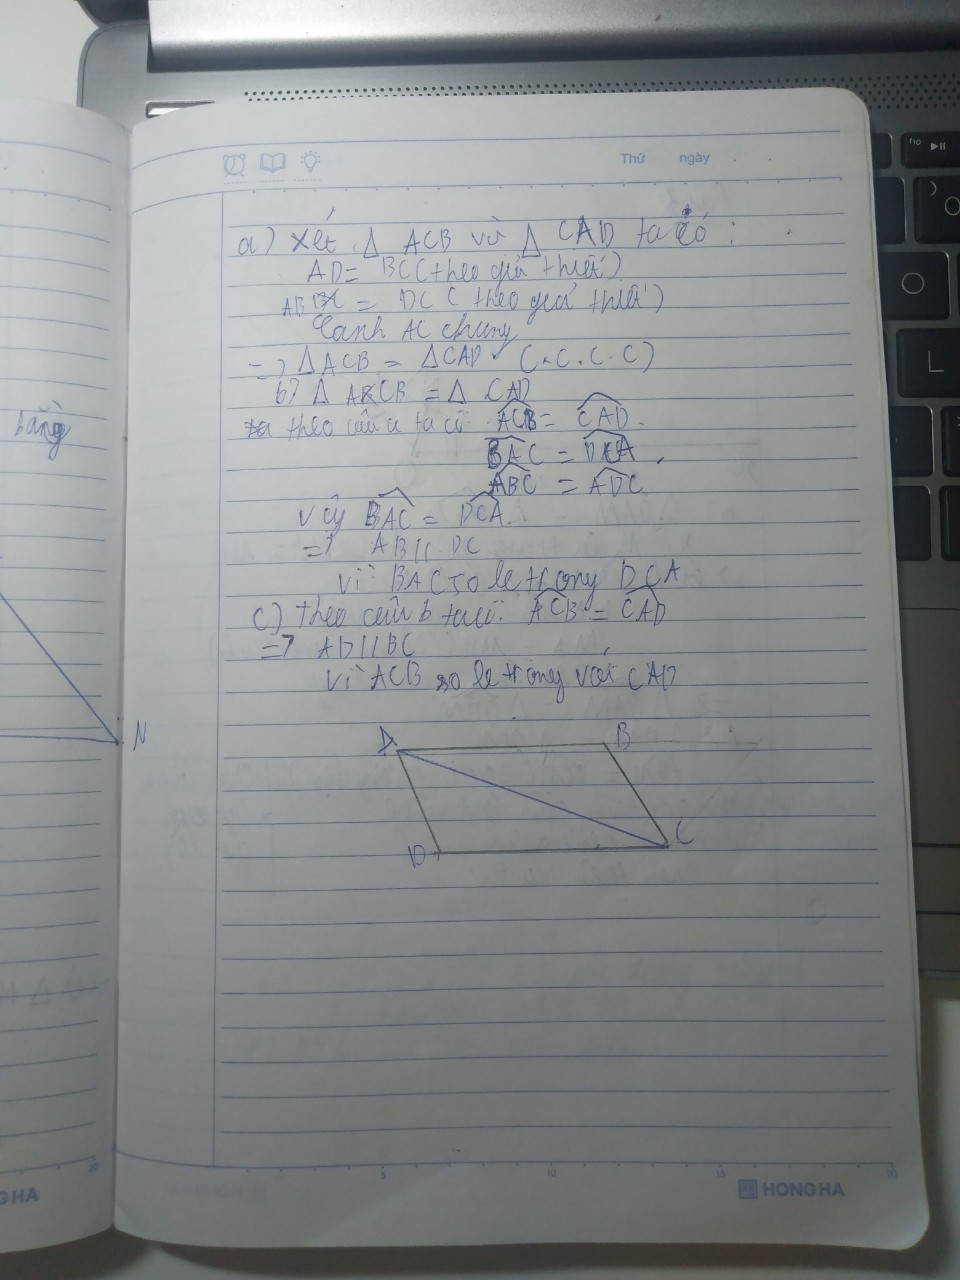 Thứ ngày
a) Xét Δ ACB và Δ CAD ta có :
AD = BC (theo giả thiết)
AB = DC (theo giả thiết)
Cạnh AC chung
=> Δ ACB = Δ CAD (c.c.c)
b) Δ ACB = Δ CAD
theo câu a ta có ACB = CAD.
BAC = DCA
ABC = ADC
vậy BAC = DCA.
=> AB // DC
vì BAC so le trong DCA
c) theo câu b ta có: ACB = CAD
=> AD // BC
vì ACB so le trong với CAD
A B
D C
bằng
N
5 10 15 20
HONG HA
20
GHA